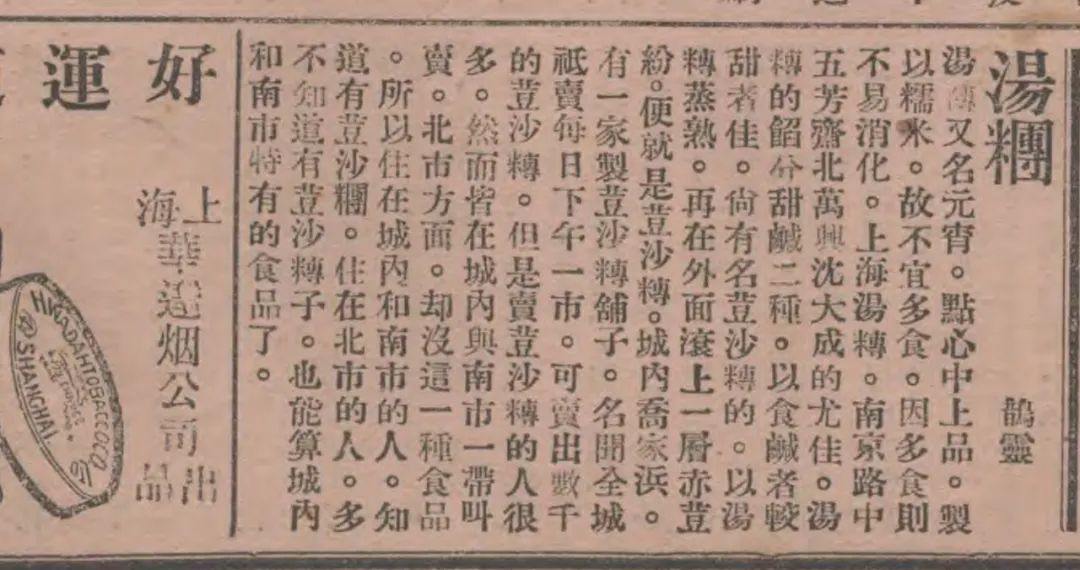 湯糰
鵲靈
湯糰又名元宵。點心中上品。製
以糯米。故不宜多食。因多食則
不易消化。上海湯糰。南京路中
五芳齋北萬興沈大成的尤佳。湯
糰的餡分甜鹹二種。以食鹹者較
甜者佳。尙有名荳沙糰的。以湯
糰蒸熟。再在外面滾上一層赤荳
紛。便就是荳沙糰。城內喬家浜。
有一家製荳沙糰舖子。名聞全城
祗賣每日下午一市。可賣出數千
的荳沙糰。但是賣荳沙糰的人很
多。然而皆在城內與南市一帶叫
賣。北市方面。却沒這一種食品
。所以住在城內和南市的人。知
道有荳沙糰。住在北市的人。多
不知道有荳沙糰子。也能算城內
和南市特有的食品了。
好運
上海華達烟公司出品
HWADAH TOBACCO CO
SHANGHAI